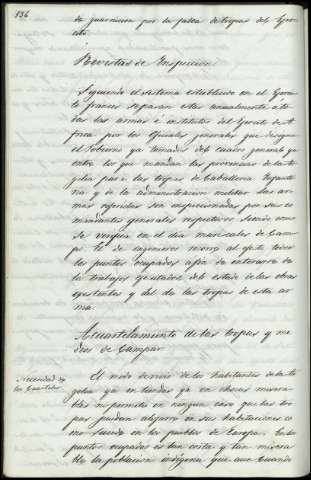 136
de guarnicion por la falta de tropas del Ejer-
cito.
Revistas de Inspeccion.
Siguiendo el sistema establecido en el Ejerci-
to frances se pasan estas anualmente á to-
das las armas é institutos del Ejercito de A-
frica por los Oficiales generales que designa
el Gobierno ya tomados del cuadro general ya
entre los que mandan las provincias de la Ar-
gelia para las tropas de Caballeria, Infante-
ria y de la administracion militar. Las ar-
mas especiales son inspeccionadas por sus co-
mandantes generales respectivos siendo como
se verifica en el dia mariscales de Cam-
po. El de ingenieros recorre al efecto todos
los puntos ocupados afin de enterarse de
los trabajos ejecutados del estado de las obras
existentes y del de las tropas de esta ar-
ma.
Acuartelamiento de las tropas y me-
dios de Campar.
Necesidad de
los Cuarteles
El modo de vivir de los habitantes de la Ar-
gelia ya en tiendas ya en chozas misera-
bles no permite en ningun caso que las tro-
pas puedan alojarse en sus habitaciones co-
mo sucede en los pueblos de Europa. En los
puntos ocupados es tan corta y tan misera-
ble la poblacion indigena que aun cuando